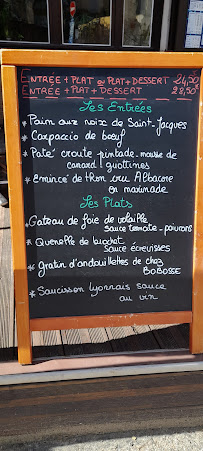 ENTRÉE + PLAT OU PLAT + DESSERT 24,50
ENTRÉE + PLAT + DESSERT 28,50€
Les Entrées
* Pain aux noix de Saint-Jacques
* Carpaccio de bœuf
* Paté croute pintade-mousse de
canard / griottines
* Emincé de thon cru Albacore
en marinade
Les Plats
* Gateau de foie de volaille
sauce tomate-poivrons
* Quenelle de brochet
sauce écrevisses
* Gratin d'andouillettes de chez
BOBOSSE
* Saucisson lyonnais sauce
au vin